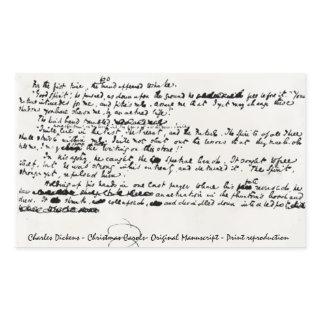 For the first time, the hand appeared to shake.
"Good Spirit," he pursued, as down upon the ground he fell before it: "Your
nature intercedes for me, and pities me. Assure me that I yet may change these
shadows you have shown me, by an altered life!"
The kind hand trembled.
live in the Past, the Present, and the Future. The Spirits of all Three
shall strive within me. I will not shut out the lessons that they teach. Oh
the writing on this stone!"
In his agony, he caught the spectral hand. It sought to free
itself, but he was strong in his entreaty, and detained it. The Spirit,
stronger yet, repulsed him.
Holding up his hands in one last prayer to have his fate reversed, he
saw an alteration in the Phantom's hood and
dress. It shrunk, collapsed, and dwindled down into a bedpost
Charles Dickens - Christmas Carols- Original Manuscript - Print reproduction